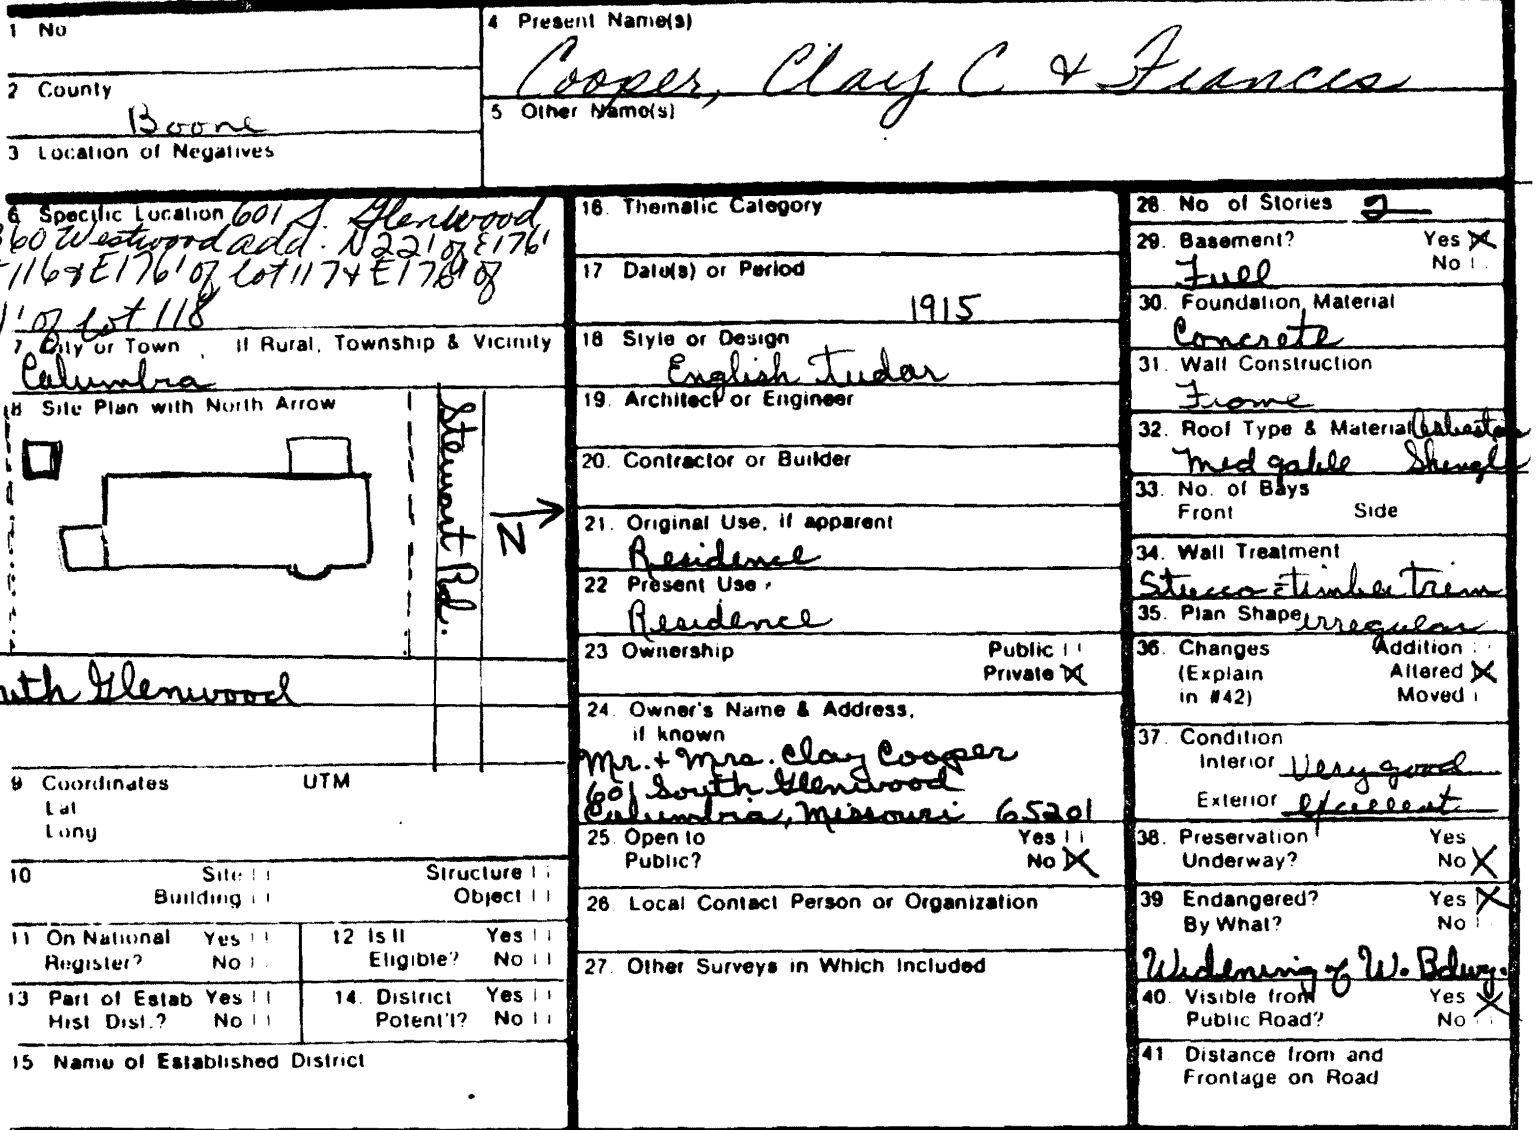 1 No
2 County
Boone
3 Location of Negatives
4 Present Name(s)
Cooper, Clay C & Frances
5 Other Name(s)
6 Specific Location 601 S. Glenwood
60 Westwood add. N22' of E176'
116 & E176' of lot 117 & E176' of
1' of Lot 118
7 City or Town if Rural, Township & Vicinity
Columbia
8 Site Plan with North Arrow
Stewart Rd.
N
uth Glenwood
9 Coordinates UTM
Lat
Long
10 Site Structure
Building Object
11 On National Register? Yes No
12 Is It Eligible? Yes No
13 Part of Estab Hist Dist.? Yes No
14. District Potent'l? Yes No
15 Name of Established District
16. Thematic Category
17 Date(s) or Period
1915
18 Style or Design
English Tudor
19. Architect or Engineer
20. Contractor or Builder
21. Original Use, if apparent
Residence
22 Present Use
Residence
23 Ownership Public
Private X
24. Owner's Name & Address,
if known
Mr. + Mrs. Clay Cooper
601 South Glenwood
Columbia, Missouri 65201
25. Open to Yes
Public? No X
26 Local Contact Person or Organization
27. Other Surveys in Which Included
28. No of Stories 2
29. Basement? Yes X
Full No
30. Foundation Material
Concrete
31. Wall Construction
Frame
32. Roof Type & Material Asbestos
med gable Shingle
33. No. of Bays
Front Side
34. Wall Treatment
Stucco - timber trim
35. Plan Shape irregular
36. Changes Addition
(Explain Altered X
in #42) Moved
37. Condition
Interior Very good
Exterior excellent
38. Preservation Yes
Underway? No X
39 Endangered? Yes X
By What? No
Widening of W. Bdwy.
40. Visible from Yes X
Public Road? No
41. Distance from and
Frontage on Road